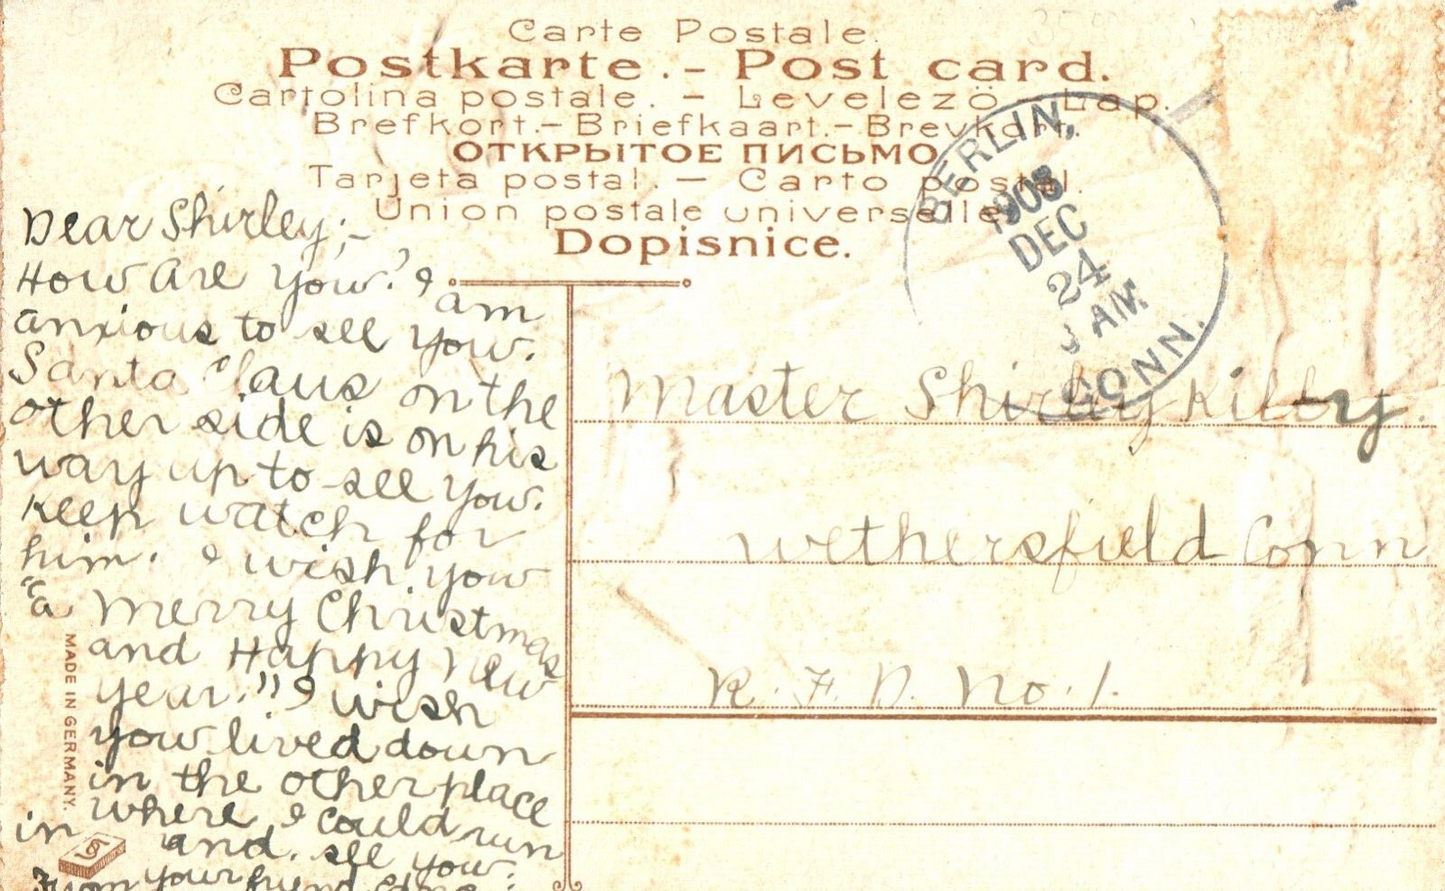 Carte Postale.
Postkarte.- Post card.
Cartolina postale. - Levelezö Lap.
Brefkort.-Briefkaart.-Brevkort.
ОТКРЫТОЕ ПИСЬМО
Tarjeta postal. - Carto postal.
Union postale universelle.
Dopisnice.
BERLIN,
1908
DEC
24
AM
CONN.
Dear Shirley;-
How are you? I am
anxious to see you.
Santa Claus on the
other side is on his
way up to see you.
Keep watch for
him. I wish you
"a Merry Christmas
and Happy New
year." I wish
you lived down
in the other place
where I could run
in and see you.
From your friend
MADE IN GERMANY.
Master Shirley Kilby.
Wethersfield Conn
R. F. D. No. 1.